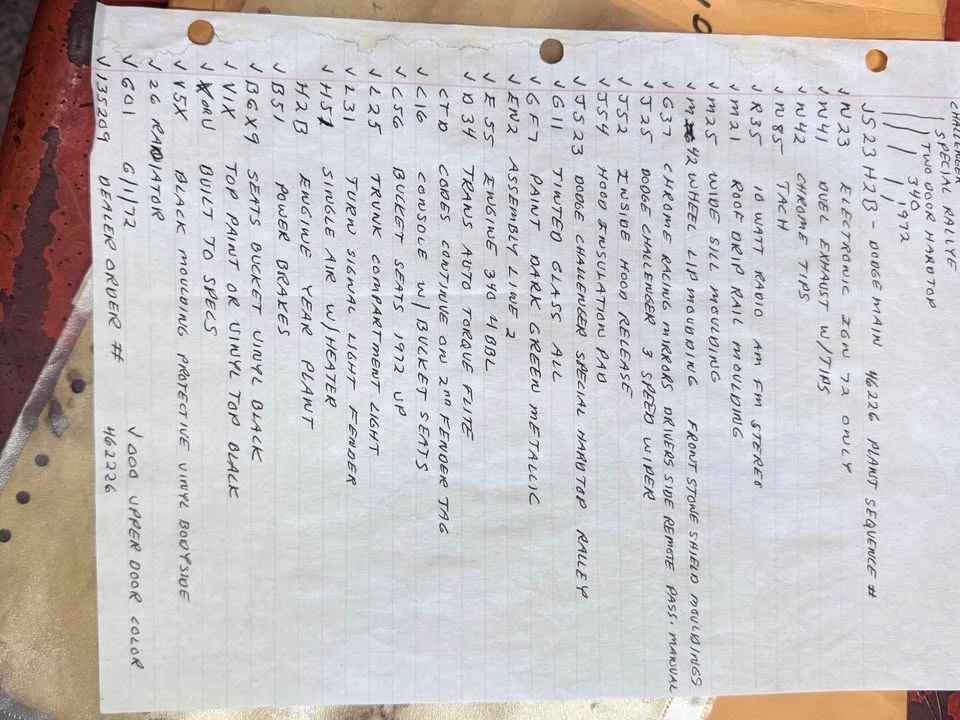 CHALLENGER
SPECIAL RALLYE
TWO DOOR HARDTOP
340
1972
JS23H2B - DODGE MAIN 46226 PLANT SEQUENCE #
✓ N23 ELECTRONIC IGN 72 ONLY
✓ N41 DUEL EXHAUST W/TIPS
✓ N42 CHROME TIPS
✓ N85 TACH
✓ R35 10 WATT RADIO AM FM STEREO
✓ M21 ROOF DRIP RAIL MOULDING
✓ M25 WIDE SILL MOULDING
✓ M 42 WHEEL LIP MOUDING FRONT STONE SHIELD MOULDINGS
✓ G37 CHROME RACING MIRRORS DRIVERS SIDE REMOTE PASS. MANUAL
✓ J25 DODGE CHALLENGER 3 SPEED WIPER
✓ J52 INSIDE HOOD RELEASE
✓ J54 HOOD INSULATION PAD
✓ JS23 DODGE CHALLENGER SPECIAL HARDTOP RALLEY
✓ G11 TINTED GLASS ALL
✓ GF7 PAINT DARK GREEN METALLIC
✓ EN2 ASSEMBLY LINE 2
✓ E55 ENGINE 340 4BBL
✓ D34 TRANS AUTO TORQUE FLITE
CTD CODES CONTINE ON 2ND FENDER TAG
✓ C16 CONSOLE W/BUCKET SEATS
✓ C56 BUCKET SEATS 1972 UP
✓ L25 TRUNK COMPARTMENT LIGHT
✓ L31 TURN SIGNAL LIGHT FENDER
✓ H51 SINGLE AIR W/HEATER
✓ H2B ENGINE YEAR PLANT
✓ B51 POWER BRAKES
✓ B6X9 SEATS BUCKET VINYL BLACK
✓ V1X TOP PAINT OR VINYL TOP BLACK
✓ ORU BUILT TO SPECS
✓ V5X BLACK MOULDING PROTECTIVE VINYL BODYSIDE
✓ 26 RADIATOR
✓ G01 6/1/72 ✓ 000 UPPER DOOR COLOR
✓ 135209 DEALER ORDER # 462226